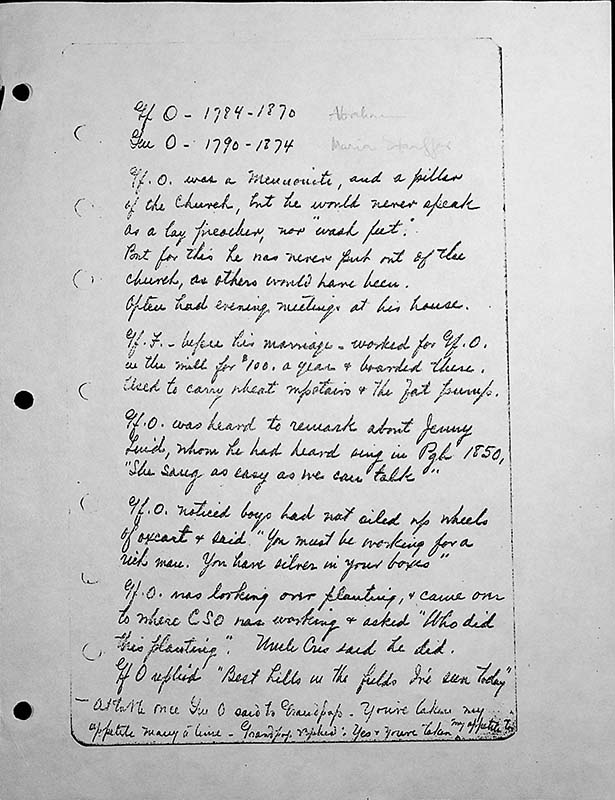 Gf O - 1784-1870 Abraham
Gm O - 1790-1874 Maria Stauffer
Gf. O. was a Mennonite, and a pillar
of the Church, but he would never speak
as a lay preacher, nor "wash feet".
But for this he was never put out of the
church, as others would have been.
Often had evening meetings at his house.
Gf. F. - before his marriage - worked for Gf. O.
in the mill for $100. a year & boarded there.
Used to carry wheat upstairs & the fat pumps.
Gf. O. was heard to remark about Jenny
Lind, whom he had heard sing in Pgh 1850,
"She sang as easy as we can talk"
Gf. O. noticed boys had not oiled up wheels
of oxcart & said "You must be working for a
rich man. You have silver in your boxes"
Gf. O. was looking over planting, & came over
to where CSO was working & asked "Who did
this planting". Uncle Cris said he did.
Gf O replied "Best hills in the fields I've seen today"
- At table once Gm O said to Grandpop - You've taken my
appetite many a time - Grandpop replied: Yes & you've taken my appetite too